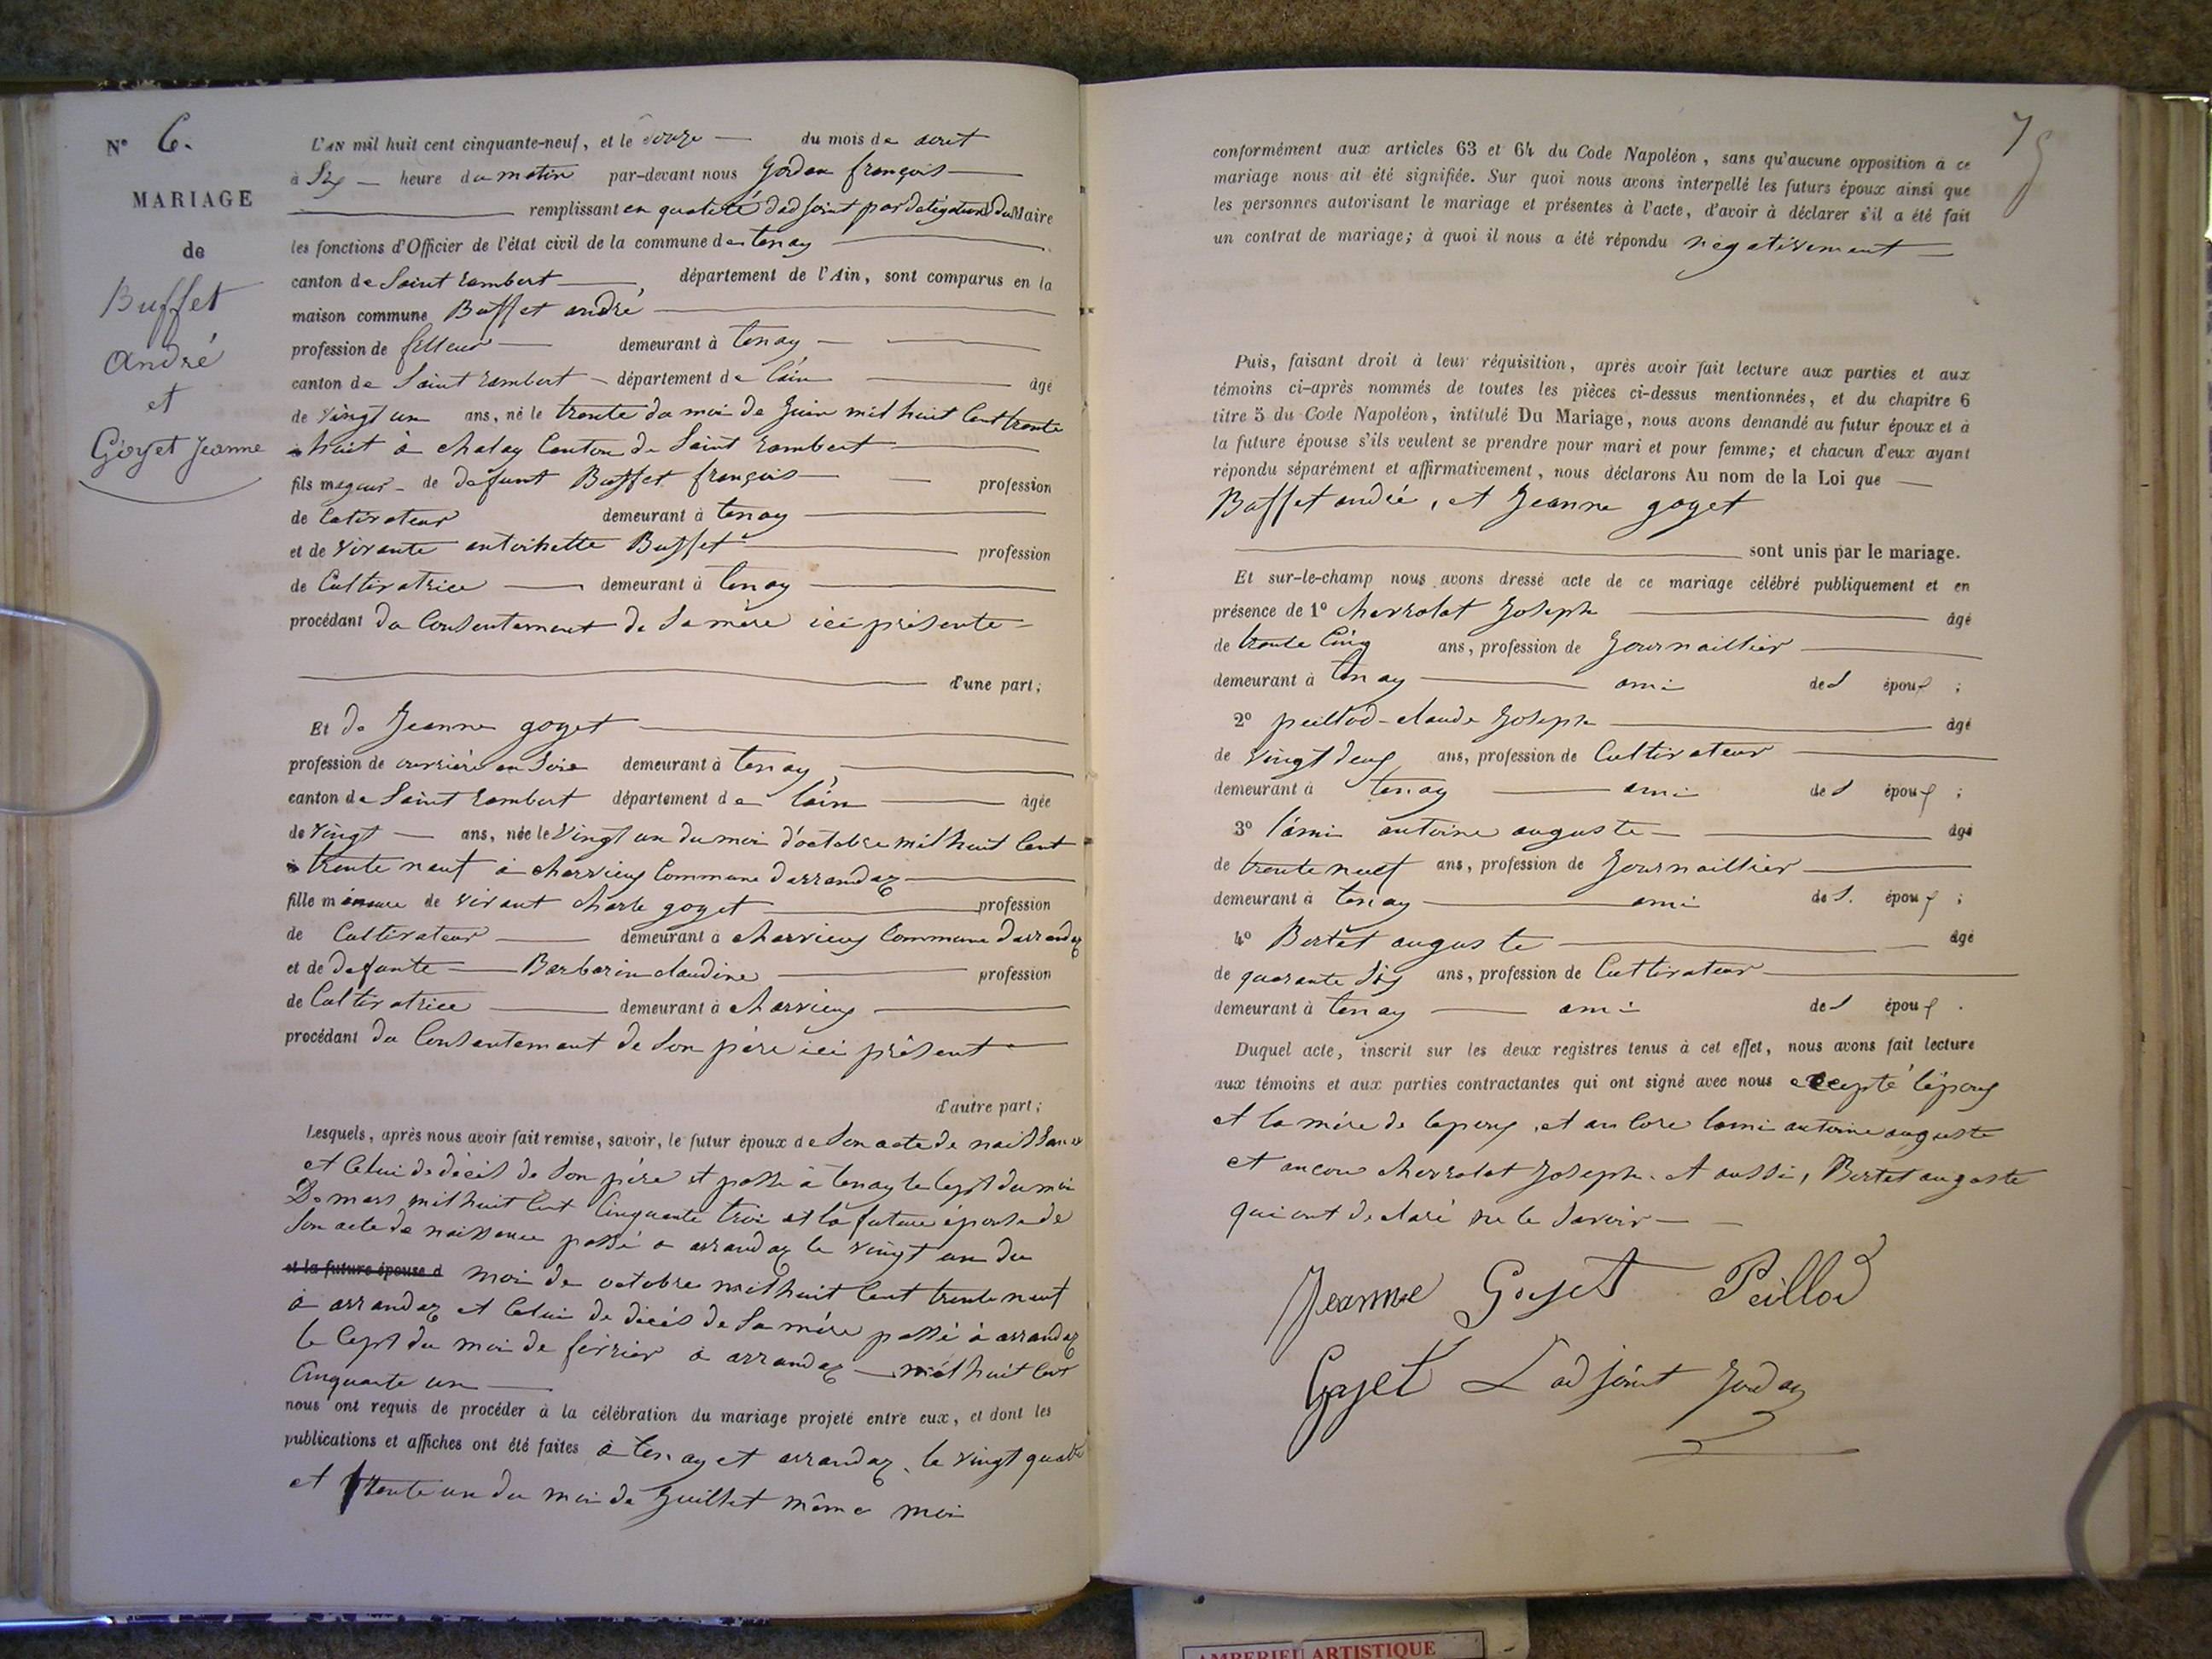 N° 6.
MARIAGE
de
Buffet
André
et
Goyet Jeanne
L'AN mil huit cent cinquante-neuf, et le douze du mois de aout
à Six heure du matin par-devant nous Jordan françois
remplissant en qualité d'adjoint par délégation du Maire
les fonctions d'Officier de l'état civil de la commune de tenay
canton de Saint rambert, département de l'Ain, sont comparus en la
maison commune Buffet andré
profession de fileur demeurant à tenay
canton de Saint rambert département de l'ain âgé
de vingt un ans, né le trente du moi de Juin mil huit Cent trente
huit à chaley Canton de Saint rambert
fils mageur de defunt Buffet françois profession
de Cultivateur demeurant à tenay
et de vivante antoinette Buffet profession
de Cultivatrice demeurant à tenay
procédant du Consentement de Sa mère ici présente
d'une part;
Et de Jeanne goyet
profession de ouvrière en Soie demeurant à tenay,
canton de Saint rambert département de l'ain âgée
de vingt ans, née le vingt un du moi d'octobre mil huit Cent
trente neuf à charvieux Commune d'arrandaz
fille mineure de vivant charle goyet profession
de Cultivateur demeurant à charvieux Commune d'arrandaz
et de defunte Barbarin claudine profession
de Cultivatrice demeurant à charvieux
procédant du Consentement de Son père ici présent
d'autre part;
Lesquels, après nous avoir fait remise, savoir, le futur époux de Son acte de naissance
et Celui de décès de Son père et passé à tenay le Sept du moi
De mars mil huit Cent Cinquante trois et la future épouse de
Son acte de naissance passé a arrandaz le vingt un du
et la future épouse d moi de octobre mil huit Cent trente neuf
à arrandaz et Celui de décès de Sa mère passé à arrandaz
le Sept du moi de février à arrandaz mil huit Cent
Cinquante un
nous ont requis de procéder à la célébration du mariage projeté entre eux, et dont les
publications et affiches ont été faites à tenay et arrandaz, le vingt quatre
et trente un du moi de Juillet même moi
conformément aux articles 63 et 64 du Code Napoléon, sans qu'aucune opposition à ce
mariage nous ait été signifiée. Sur quoi nous avons interpellé les futurs époux ainsi que
les personnes autorisant le mariage et présentes à l'acte, d'avoir à déclarer s'il a été fait
un contrat de mariage; à quoi il nous a été répondu negativement
Puis, faisant droit à leur réquisition, après avoir fait lecture aux parties et aux
témoins ci-après nommés de toutes les pièces ci-dessus mentionnées, et du chapitre 6
titre 5 du Code Napoléon, intitulé Du Mariage, nous avons demandé au futur époux et à
la future épouse s'ils veulent se prendre pour mari et pour femme; et chacun d'eux ayant
répondu séparément et affirmativement, nous déclarons Au nom de la Loi que
Buffet andré, et Jeanne goyet
sont unis par le mariage.
Et sur-le-champ nous avons dressé acte de ce mariage célébré publiquement et en
présence de 1° chevrolat Joseph âgé
de trente Cinq ans, profession de Journaillier
demeurant à tenay ami des époux ;
2° peillod claude Joseph âgé
de vingt deux ans, profession de Cultivateur
demeurant à tenay ami des époux ;
3° lami antoine auguste âgé
de trente neuf ans, profession de Journaillier
demeurant à tenay ami des époux ;
4° Bertet auguste âgé
de quarante Six ans, profession de Cultivateur
demeurant à tenay ami des époux .
Duquel acte, inscrit sur les deux registres tenus à cet effet, nous avons fait lecture
aux témoins et aux parties contractantes qui ont signé avec nous excepté l'époux
et la mère de l'epoux, et en Core lami antoine auguste
et encore chevrolat Joseph. et aussi, Bertet auguste
qui ont déclaré ne le Savoir
Jeanne Goyet Peillod
Goyet L'adjoint Jordan
AMBERIEU ARTISTIQUE